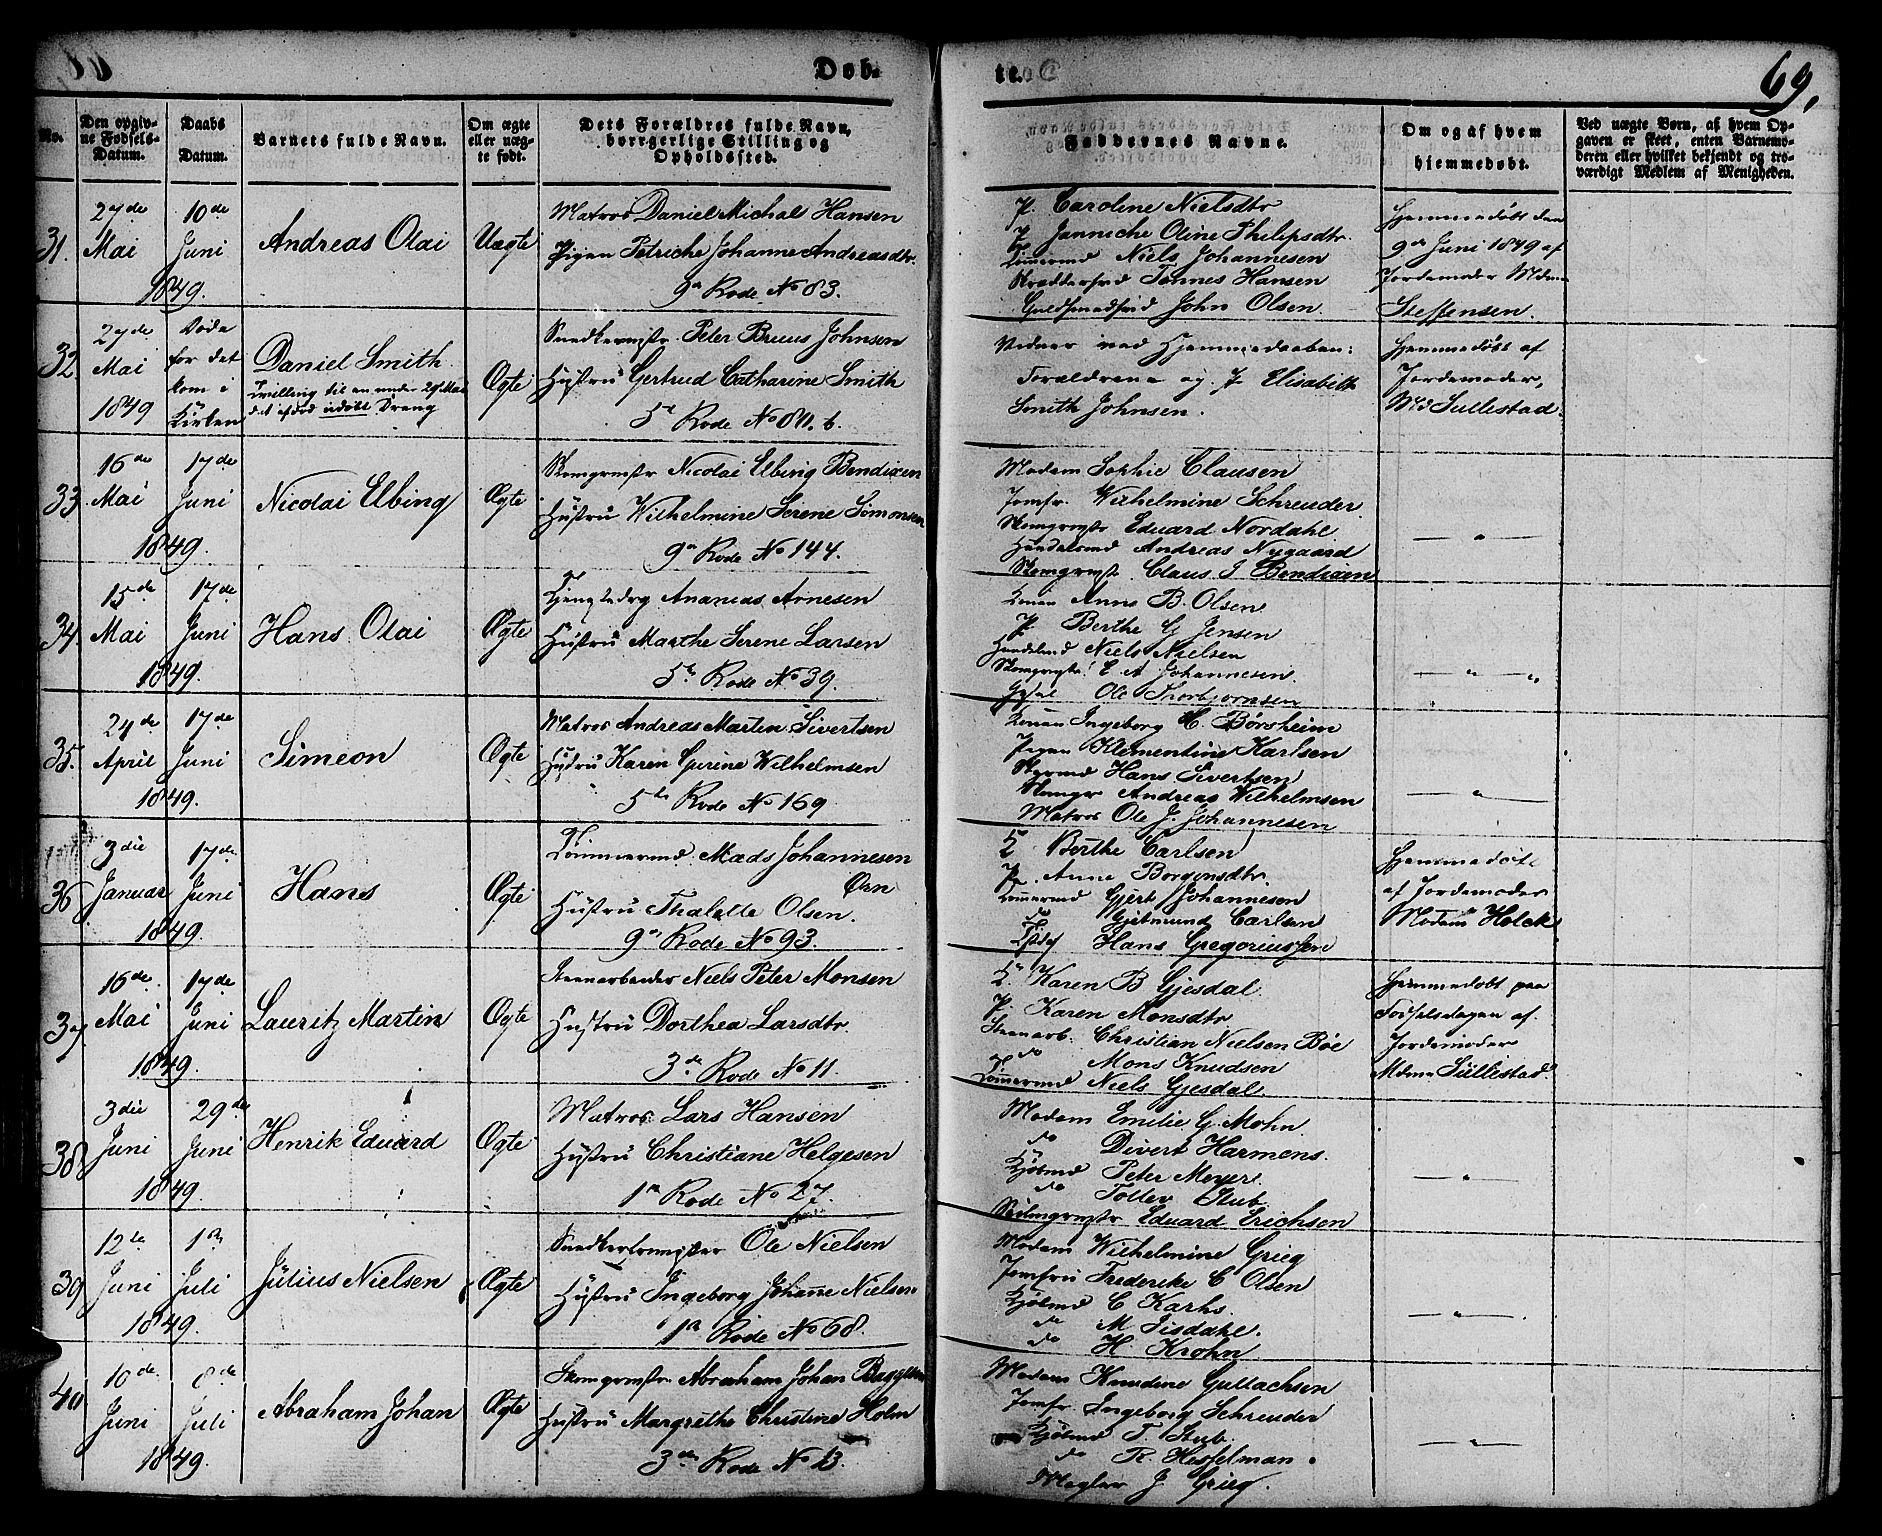 Døb-
te.
69.
No.
Den opgiv-
ne Fødsels-
Datum.
Daabs
Datum.
Barnets fulde Navn.
Om ægte
eller uæg-
te født.
Dets Forældres fulde Navn,
borgerlige Stilling og
Opholdssted.
Faddernes Navne.
Om og af hvem
hjemmedøbt.
Ved uægte Børn, af hvem Op-
gaven er skeet, enten Barnemo-
deren eller hvilket bekjendt og tro-
værdigt Medlem af Menigheden.
31.
27de
Mai
10de
Juni
1849.
Andreas Olai
Uægte
Matros Daniel Michal Hansen
Pigen Petriche Johanne Andreasdtr.
9de Rode No 83.
P. Caroline Nielsdtr
P. Janniche Oline Philipsdtr.
Tømermd Niels Johannesen
Tønnes Hansen
John Olsen
Hjemmedøbt den
9de Juni 1849 af
Jordemoder Mdme
Steffensen.
32
27de
Mai
1849
Døde
før det
kom i
Kirken
Daniel Smith.
Tvilling til en under 29 Mai
udøbt Dreng
Ægte
Snedkermstr Peter Bruus Johnsen
Hustru Gertrud Catharine Smith
5te Rode No 80. b.
Vidner ved Hjemmedaaben:
Forældrene og J Elisabeth
Smith Johnsen.
Hjemmedøbt af
Jordemoder,
Md Sullestad.
33.
16de
Mai
17de
Juni
1849.
Nicolai Elbing
Ægte
Skomgrmstr Nicolai Elbing Bendixen
Hustru Wilhelmine Serene Simonsen
9de Rode No 144.
Madam Sophie Clausen
Jomfr. Wilhelmine Schreuder
Skomgrmstr Eduard Nordahl
Handelsmd Andreas Nygaard
Skomgrmst. Claus J Bendixen
— " —
34.
15de
Mai
17de
Juni
1849.
Hans Olai
Ægte
Ananias Arnesen
Hustru Marthe Serene Larsen
5te Rode No 39.
Konen Anne B. Olsen
P. Berthe G Jensen
Handelsmd Niels Nielsen
E. A Johannesen
Ole Thorbjørnsen
— " — "
35.
24de
April
17de
Juni
1849.
Simeon
Ægte
Matros Andreas Martin Sivertsen
Hustru Karen Gurine Wilhelmsen
5te Rode No 169
Konen Ingeborg H. Børsheim
Pigen Klementine Karlsen
Hans Sivertsen
Andreas Wilhelmsen
Matros Ole J. Johannesen
— " —
36
3die
Januar
17de
Juni
1849.
Hans
Ægte
Tømmermd. Mads Johannesen
Ørn
Hustru Thalette Olsen.
9de Rode No 93.
K Berthe Carlsen
P. Anne Borgensdtr.
Tømermd Gjert Johannesen
do Gjetmund Carlsen
Hans Gregoriussen
Hjemmedøbt
af Jordemoder
Madam Holck
37.
16de
Mai
17de
Juni
1849.
Lauritz Martin
Ægte
Steenarbeider Niels Peter Monsen
Hustru Dorthea Larsdtr.
3de Rode No 11.
K. Karen B Gjesdal
P. Karen Monsdtr
Steenarb. Christian Nielsen Bøe
do Mons Knudsen
Tømermd Niels Gjesdal.
Hjemmedøbt paa
Fødselsdagen af
Jordemoder
Mdme Sullestad.
38
3die
Juni
29de
Juni
1849.
Henrik Eduard
Ægte
Matros Lars Hansen
Hustru Christiane Helgesen
1ste Rode No 27.
Madam Emilie G. Mohn.
do Divert Harmens.
Kjøbmd Peter Meyer.
do Tollev Stub.
Eduard Erichsen
— " —
39
12te
Juni
1ste
Juli
1849.
Julius Nielsen
Ægte
Snedkersvenmester Ole Nielsen
Hustru Ingeborg Johanne Nielsen.
1ste Rode No 68.
Madam Wilhelmine Grieg
Jomfru Frederike C Olsen
Kjøbmd C Karhs.
do M Jisdahl.
do H Krohn
— " —
40
10de
Juni
8de
Juli
1849.
Abraham Johan
Ægte
Skomgrmstr Abraham Johan Baggesen
Hustru Margrethe Christine Holm
3de Rode No 13.
Madam Knudine Gullachsen
Jomfr. Ingeborg Schreuder
Kjøbmd T. Stub.
do R. Hesselman.
Megler J Grieg.
— " —